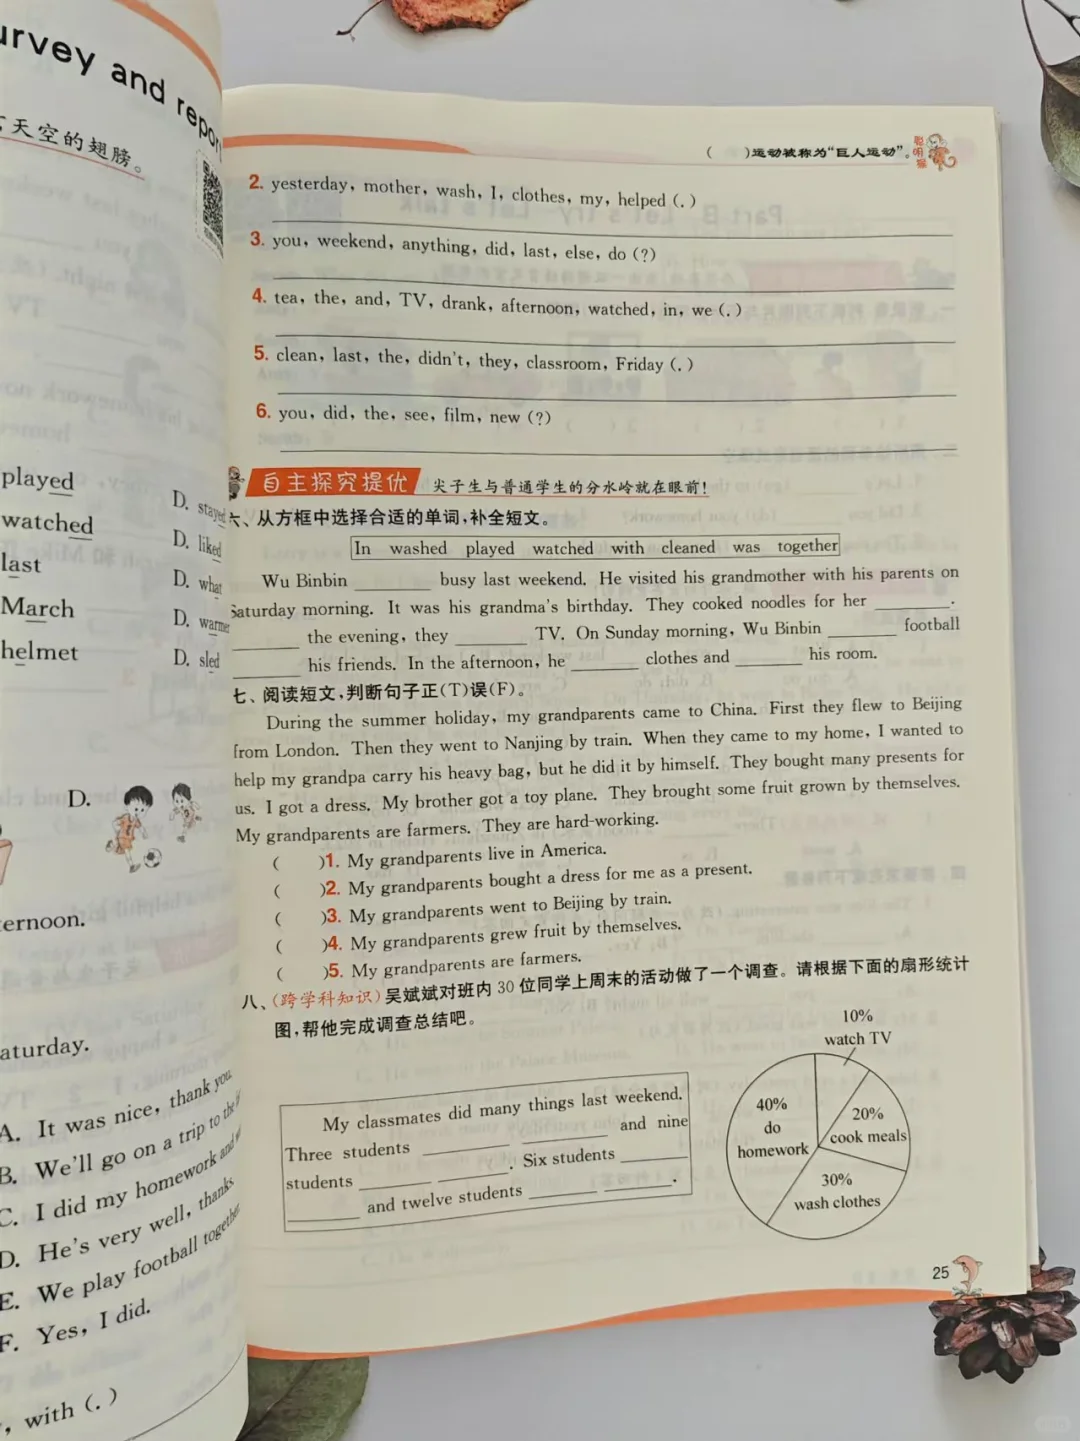 urvey and repor
天空的翅膀。
played
watched
last
March
helmet
D. stayed
D. liked
D. what
D. warmer
D. sled
D.
ternoon.
aturday.
A. It was nice, thank you.
B. We'll go on a trip to the
C. I did my homework and
D. He's very well, thanks.
E. We play football together.
F. Yes, I did.
, with (.)
( )运动被称为“巨人运动”。
聪明屋
2. yesterday, mother, wash, I, clothes, my, helped (.)
3. you, weekend, anything, did, last, else, do (?)
4. tea, the, and, TV, drank, afternoon, watched, in, we (.)
5. clean, last, the, didn't, they, classroom, Friday (.)
6. you, did, the, see, film, new (?)
自主探究提优 尖子生与普通学生的分水岭就在眼前!
六、从方框中选择合适的单词,补全短文。
In washed played watched with cleaned was together
Wu Binbin ______ busy last weekend. He visited his grandmother with his parents on
Saturday morning. It was his grandma's birthday. They cooked noodles for her ______.
______ the evening, they ______ TV. On Sunday morning, Wu Binbin ______ football
______ his friends. In the afternoon, he ______ clothes and ______ his room.
七、阅读短文,判断句子正(T)误(F)。
During the summer holiday, my grandparents came to China. First they flew to Beijing
from London. Then they went to Nanjing by train. When they came to my home, I wanted to
help my grandpa carry his heavy bag, but he did it by himself. They bought many presents for
us. I got a dress. My brother got a toy plane. They brought some fruit grown by themselves.
My grandparents are farmers. They are hard-working.
( )1. My grandparents live in America.
( )2. My grandparents bought a dress for me as a present.
( )3. My grandparents went to Beijing by train.
( )4. My grandparents grew fruit by themselves.
( )5. My grandparents are farmers.
八、(跨学科知识)吴斌斌对班内30位同学上周末的活动做了一个调查。请根据下面的扇形统计
图,帮他完成调查总结吧。
My classmates did many things last weekend.
Three students ______ ______ and nine
students ______ ______. Six students ______
______ and twelve students ______ ______.
10%
watch TV
40%
do
homework
20%
cook meals
30%
wash clothes
25